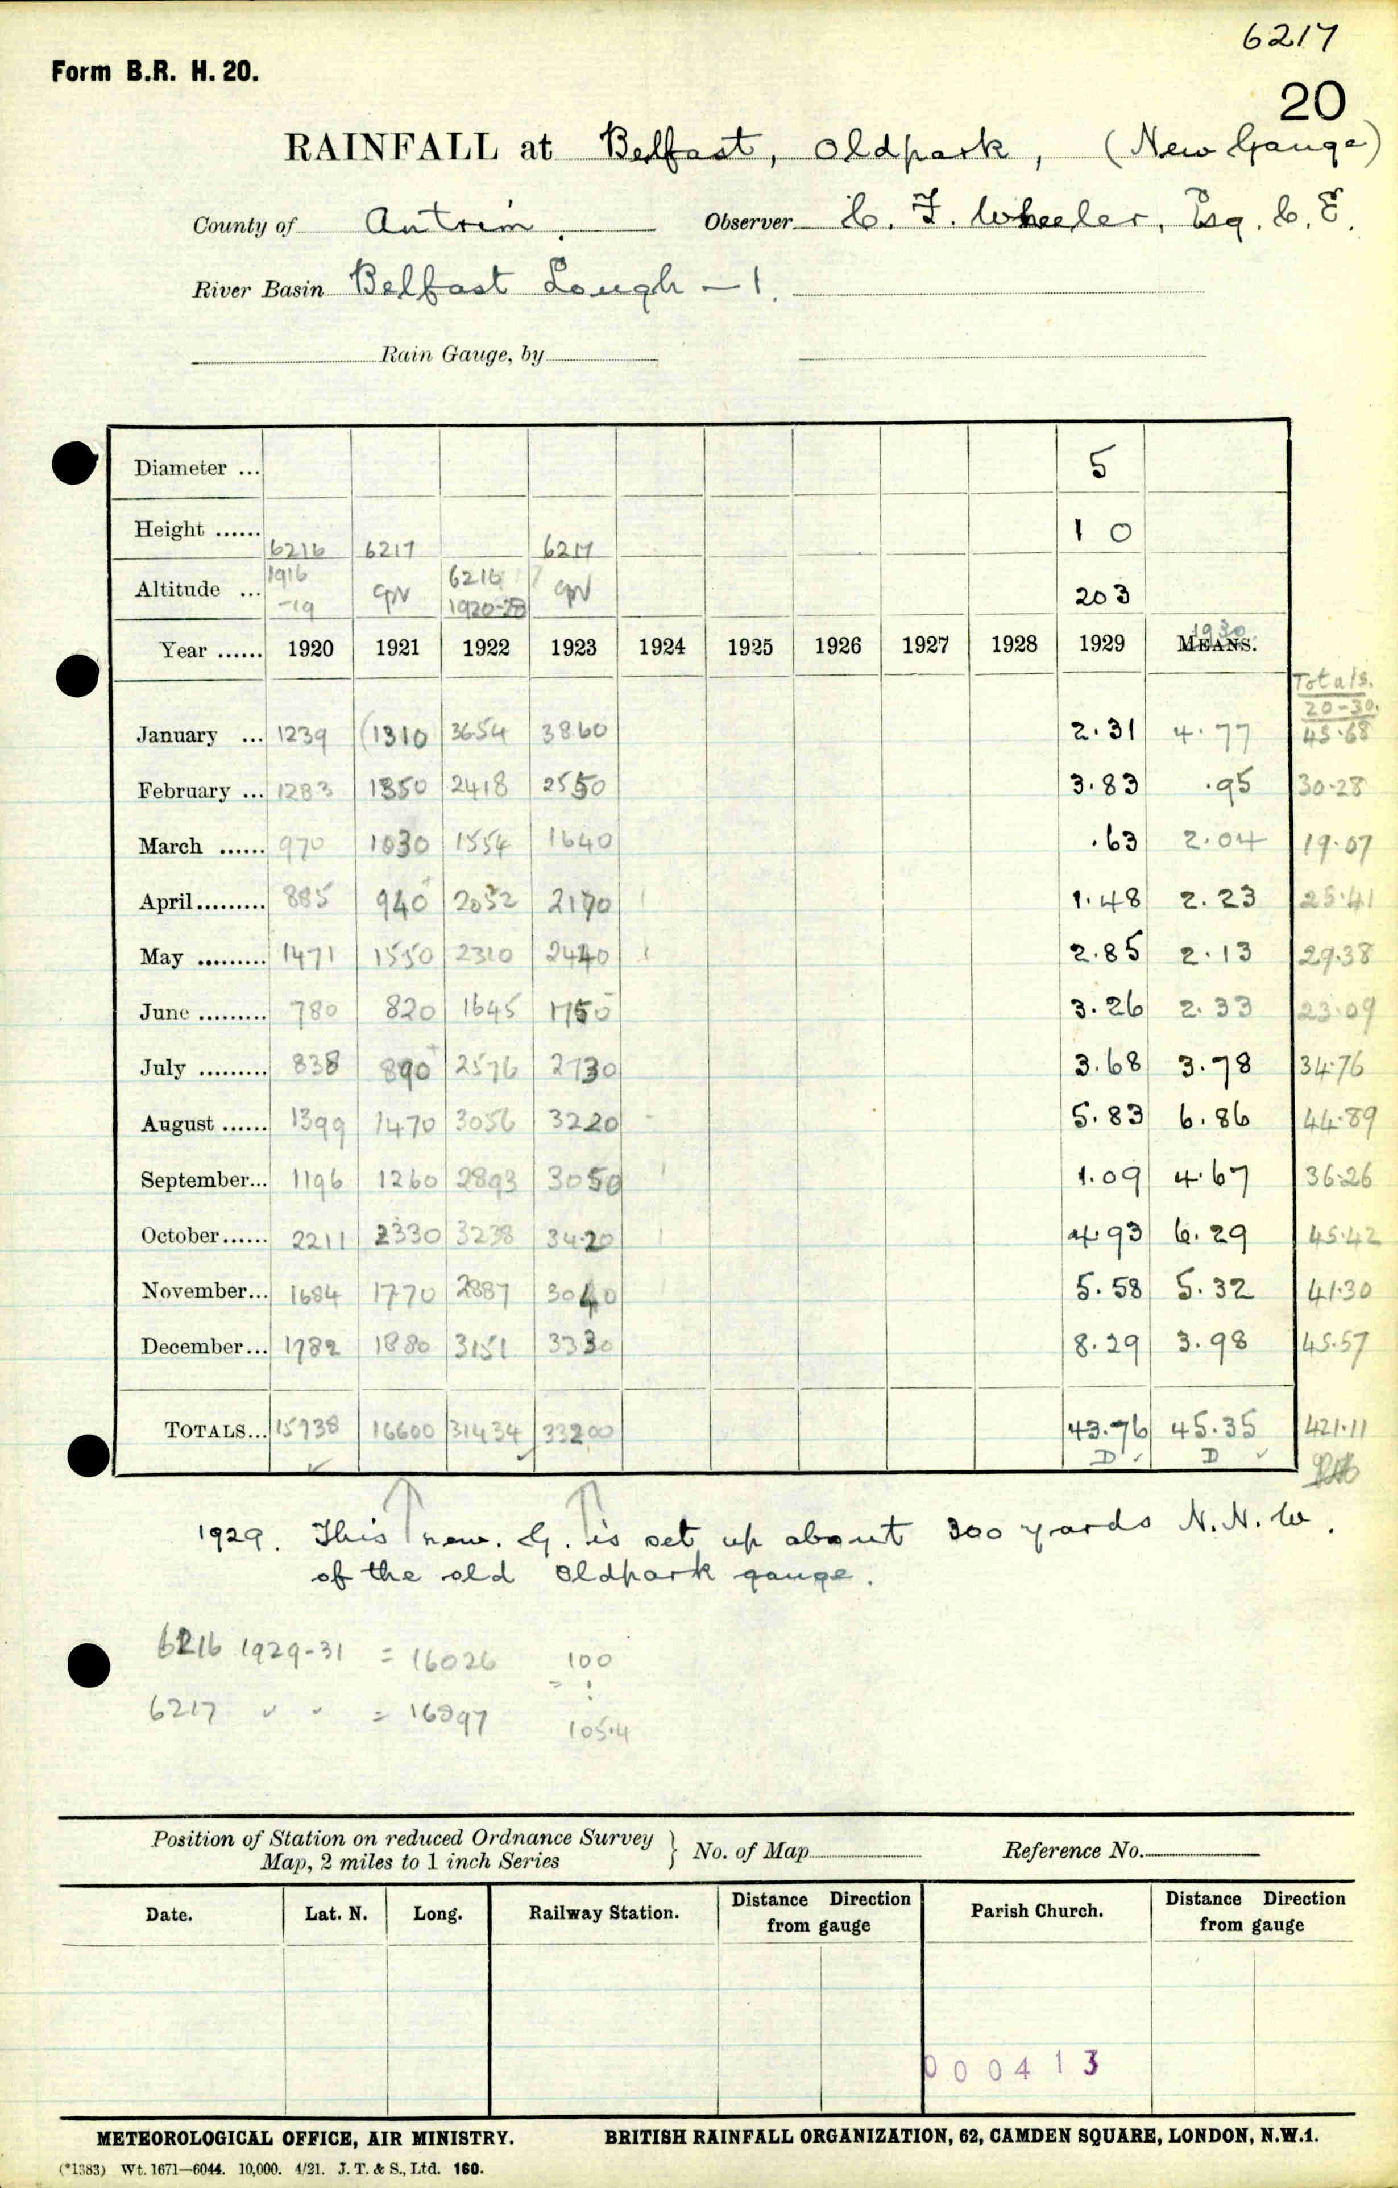 6217
Form B.R. H. 20.
20
RAINFALL at Belfast, Oldpark, (New Gauge)
County of Antrim. Observer C. F. Wheeler, Esq. C. E.
River Basin Belfast Lough — 1.
Rain Gauge, by
Diameter ... 5
Height ...... 1 0
6216 6217 6217
Altitude ... 1916 -19 6216 1920-28 203
Year ...... 1920 1921 1922 1923 1924 1925 1926 1927 1928 1929 MEANS. 1930
Totals.
20-30.
January ... 1239 (1310 3654 3860 2.31 4.77 45.68
February ... 1283 1350 2418 2550 3.83 .95 30.28
March ...... 970 1030 1554 1640 .63 2.04 19.07
April......... 885 940 2052 2170 1.48 2.23 25.41
May ......... 1471 1550 2310 2440 2.85 2.13 29.38
June ......... 780 820 1645 1750 3.26 2.33 23.09
July ......... 838 890 2576 2730 3.68 3.78 34.76
August ...... 1399 1470 3056 3220 5.83 6.86 44.89
September... 1196 1260 2893 3050 1.09 4.67 36.26
October...... 2211 2330 3238 3420 4.93 6.29 45.42
November... 1684 1770 2887 3040 5.58 5.32 41.30
December... 1782 1880 3151 3330 8.29 3.98 45.57
TOTALS... 15738 16600 31434 33200 43.76 45.35 421.11
D ✓ D ✓
1929. This new. G. is set up about 300 yards N.N.W.
of the old Oldpark gauge.
6216 1929-31 = 16026 100
= :
6217 " " = 16897 105.4
Position of Station on reduced Ordnance Survey
Map, 2 miles to 1 inch Series } No. of Map Reference No.
Date. Lat. N. Long. Railway Station. Distance Direction from gauge Parish Church. Distance Direction from gauge
000413
METEOROLOGICAL OFFICE, AIR MINISTRY. BRITISH RAINFALL ORGANIZATION, 62, CAMDEN SQUARE, LONDON, N.W.1.
(*1383) Wt. 1671—6044. 10,000. 4/21. J. T. & S., Ltd. 160.